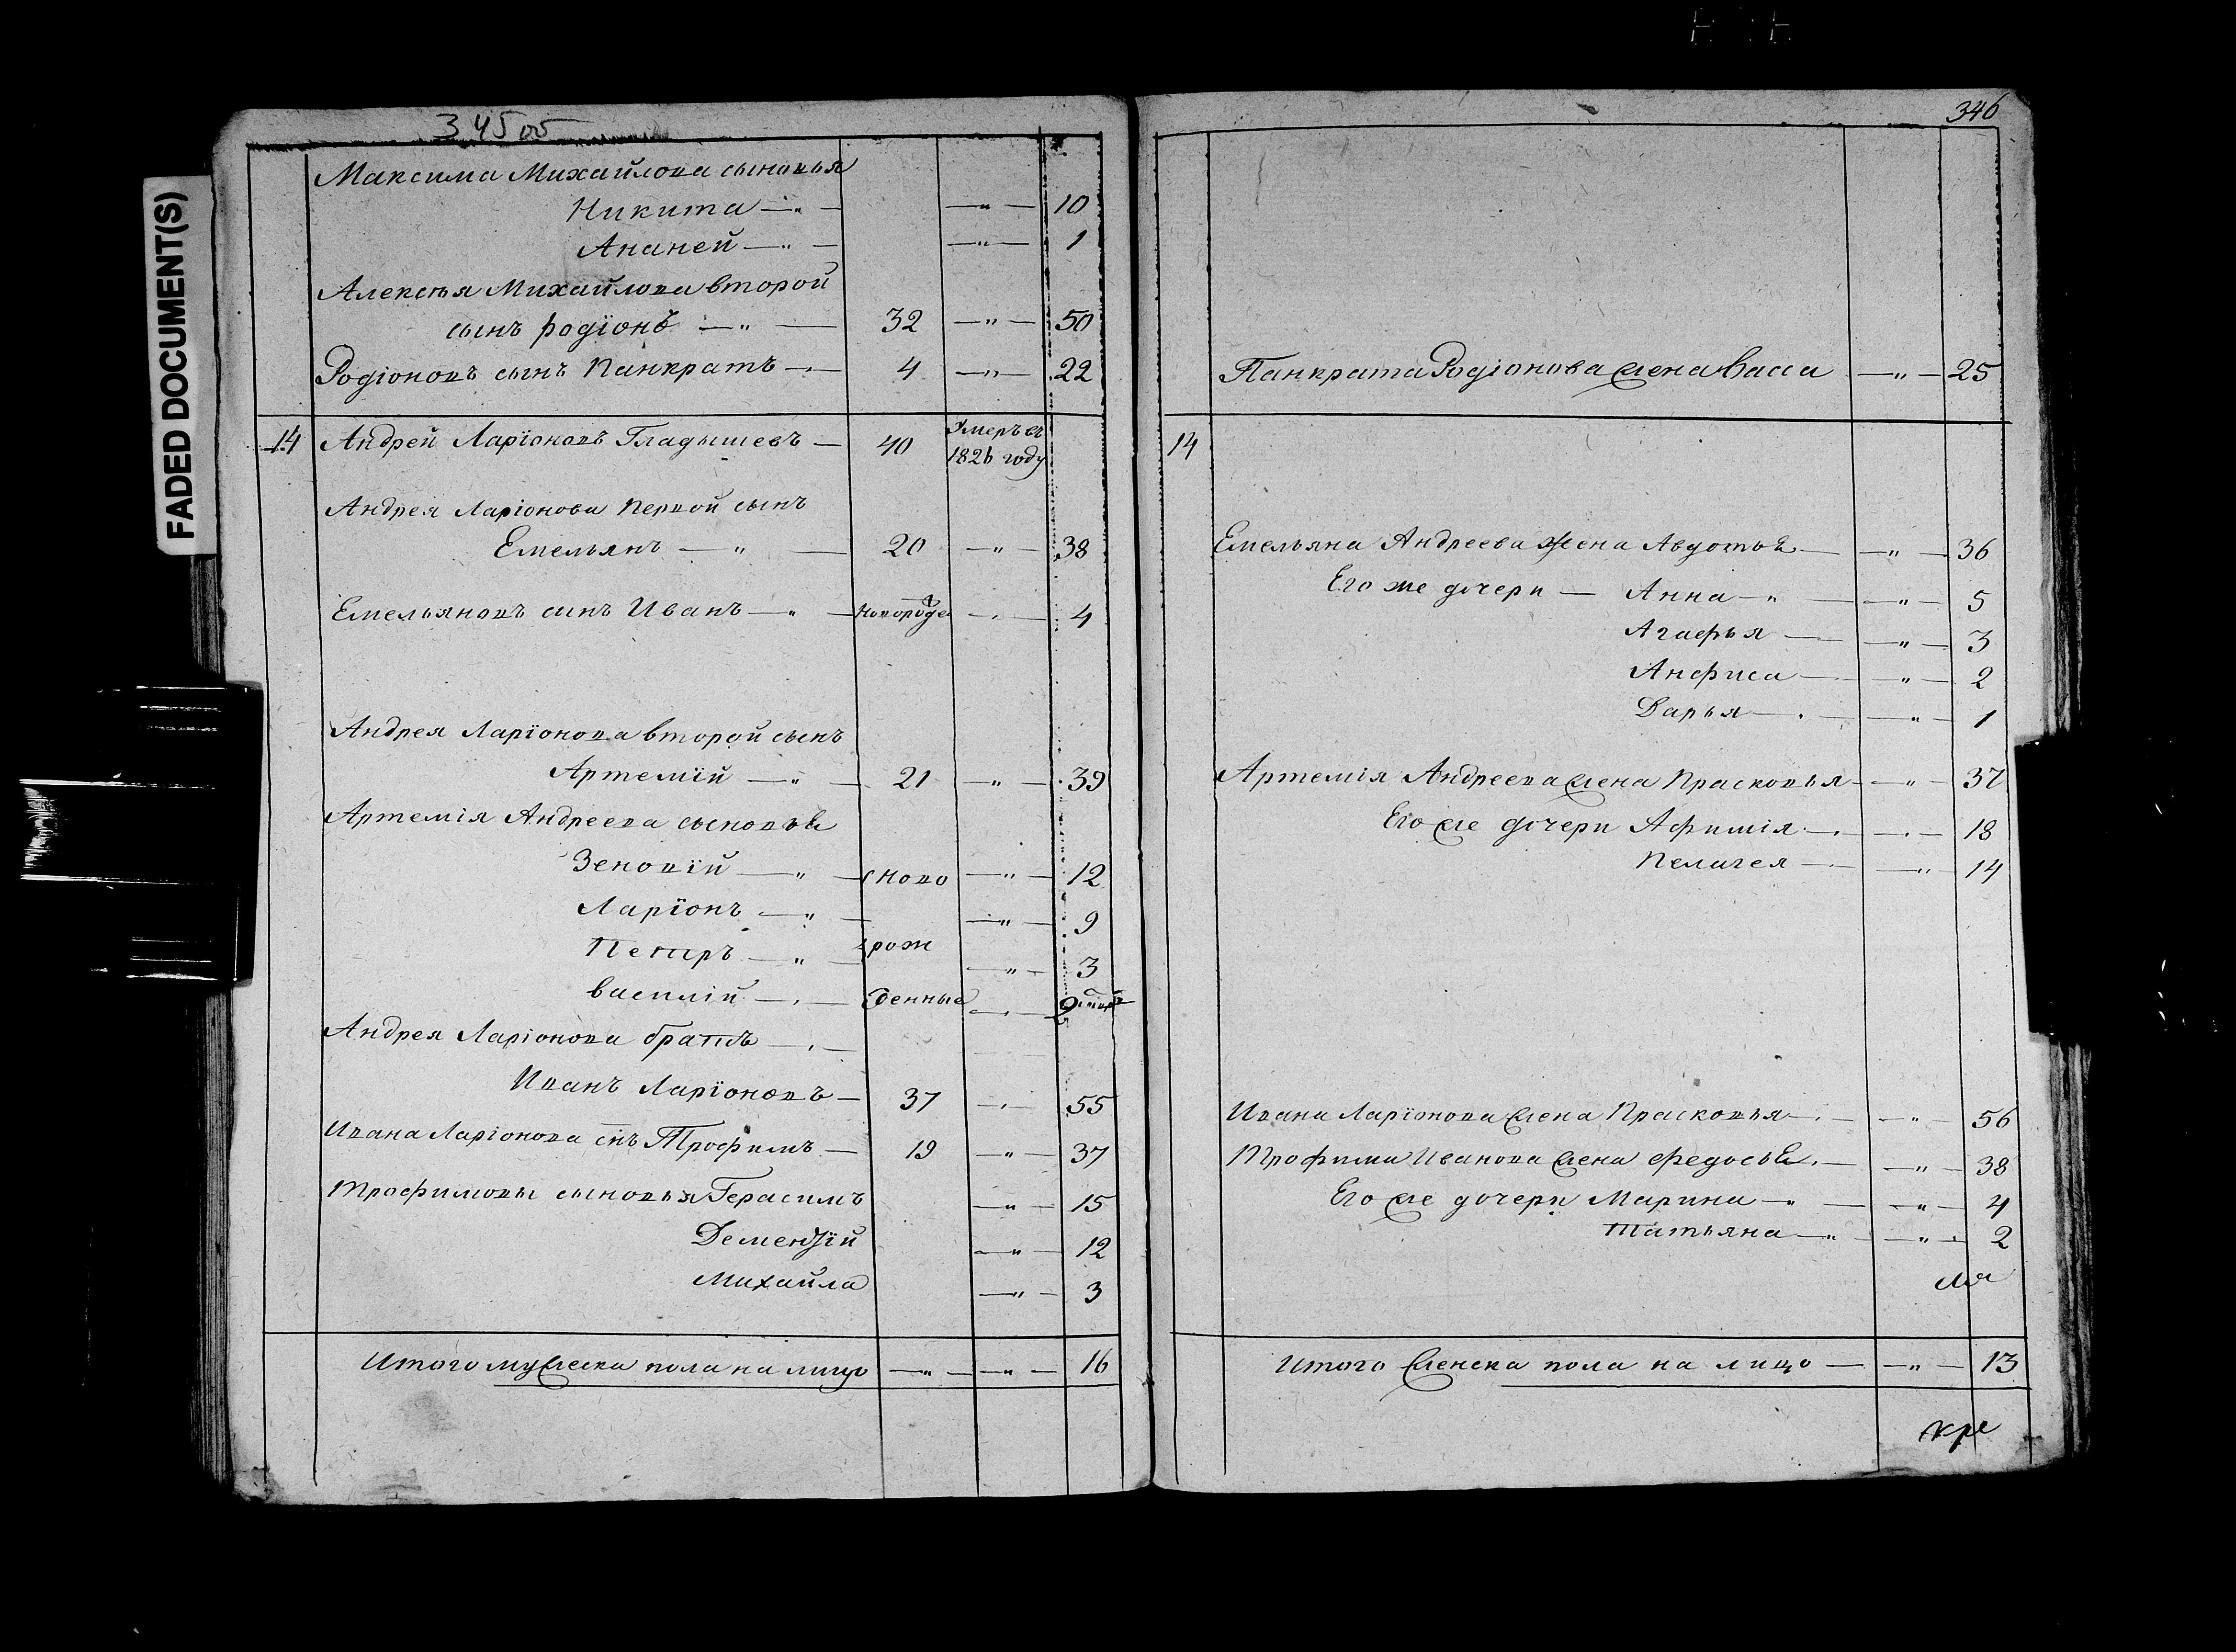 FADED DOCUMENT(S)
345 об
Максима Михайлова сыновья
Никита — " — — " — 10
Ананей — " — — " — 1
Алексѣя Михайлова второй
сынъ родіонъ — " — 32 — " — 50
Родіоновъ сынъ Панкратъ — 4 — " — 22
14 Андрей Ларіоновъ Гладышевъ — 40 Умеръ въ
1826 году
Андрея Ларіонова Первой сынъ
Емельянъ — " — 20 — " — 38
Емельяновъ сынъ Иванъ — " — новорожде — 4
Андрея Ларіонова второй сынъ
Артемій — " — 21 — " — 39
Артемія Андреева сыновья
Зеновій — " — ново — " — 12
Ларіонъ — " — — " — 9
Петръ — " — рож — " — 3
василій — " — денные — 2
Андрея Ларіонова братъ —
Иванъ Ларіоновъ — 37 — 55
Ивана Ларіонова снъ Трофимъ — 19 — " — 37
Трофимовы сыновья Герасимъ — " — 15
Дементій — " — 12
Михайла — " — 3
Итого мужеска пола на лицо — " — — " — 16
346
Панкрата Родіонова жена Васса — " — 25
14
Емельяна Андреева жена Авдотья — — " — 36
Его же дочери — Анна — " — — " — 5
Агафья — — " — 3
Анфиса — — " — 2
Дарья — — " — 1
Артемія Андреева жена Прасковья — — " — 37
Его же дочери Афимія — — 18
Пелагея — — " — 14
Ивана Ларіонова жена Прасковья — — " — 56
Трофима Иванова жена федосья — — " — 38
Его же дочери Марина — " — — " — 4
Татьяна — " — — " — 2
Итого женска пола на лицо — — " — 13
кре